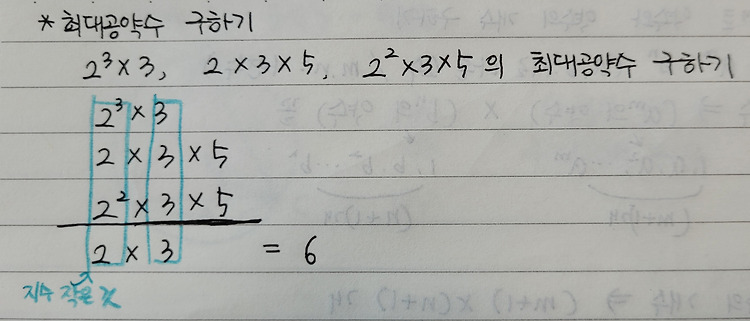 * 최대공약수 구하기
2³ × 3, 2 × 3 × 5, 2² × 3 × 5 의 최대공약수 구하기
2³ × 3
2 × 3 × 5
2² × 3 × 5
2 × 3 = 6
지수 작은 것